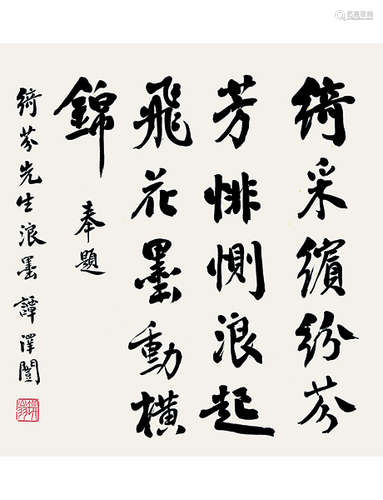 綺采繽紛芬
芳悱惻浪起
飛花墨動橫
錦
奉題
綺芬先生浪墨 譚澤闓